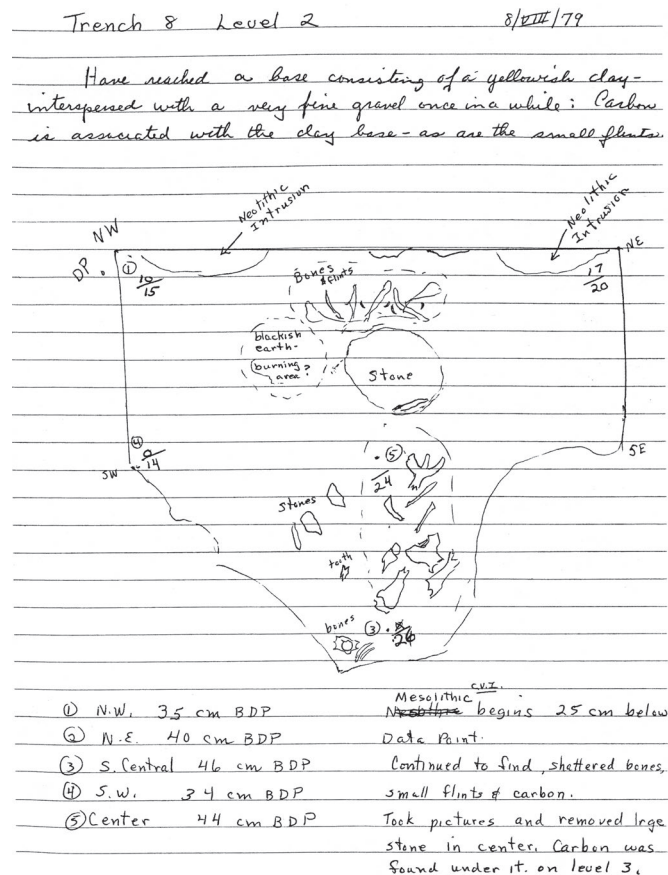 Trench 8 Level 2 8/VIII/79
Have reached a base consisting of a yellowish clay-
interspersed with a very fine gravel once in a while: Carbon
is associated with the clay base - as are the small flints.
Neolithic
Intrusion
Neolithic
Intrusion
NW
NE
DP.
① 10/15
17/20
Bones
& flints
blackish
earth-
burning?
area
Stone
④ 0/14
SW
SE
⑤
24
Stones
teeth
bones
③ 26
① N.W. 35 cm BDP
② N.E. 40 cm BDP
③ S. Central 46 cm BDP
④ S.W. 34 cm BDP
⑤ Center 44 cm BDP
C.V.I.
Mesolithic
begins 25 cm below
Data Point.
Continued to find, shattered bones,
small flints & carbon.
Took pictures and removed lrge
stone in center. Carbon was
found under it. on level 3.